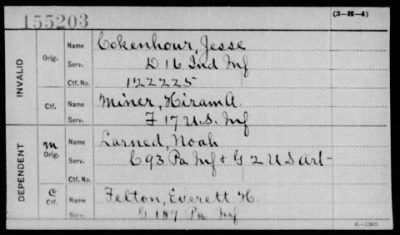 155203
(3-H-4)
INVALID
Orig.
Name Cokenhour, Jesse
Serv. D 16 Ind Inf
Ctf. No. 122225
Ctf.
Name Miner, Hiram A.
Serv. F 17 U.S. Inf
DEPENDENT
M Orig.
Name Larned, Noah
Serv. C 93 Pa Inf & G 2 U S art
Ctf. No.
C Ctf.
Name Felton, Everett H.
Serv. G 187 Pa Inf